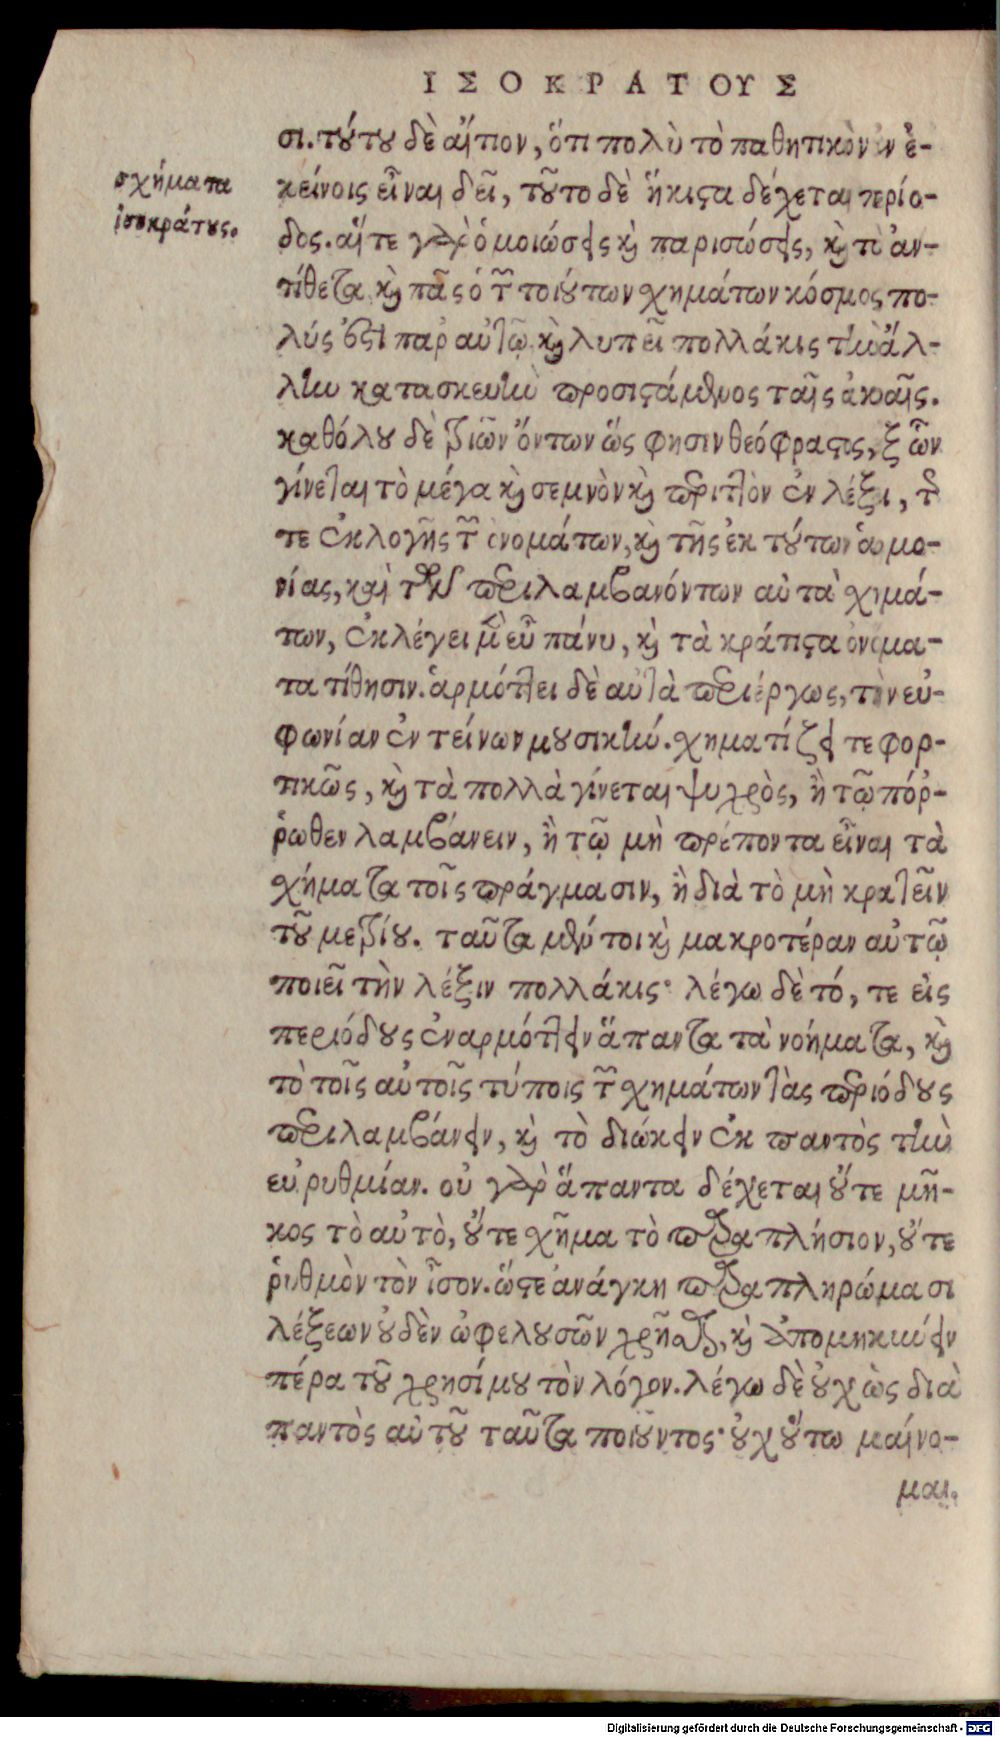 ΙΣΟΚΡΑΤΟΥΣ
σι. τούτου δὲ αἴτιον, ὅτι πολὺ τὸ παθητικὸν ἐν ἐ-
σχήματα
ἰσοκράτους.
κείνοις εἶναι δεῖ, τοῦτο δὲ ἥκιστα δέχεται περίο-
δος. αἵ τε γὰρ ὁμοιώσεις καὶ παρισώσεις, καὶ τὰ ἀν-
τίθετα, καὶ πᾶς ὁ τῶν τοιούτων σχημάτων κόσμος πο-
λύς ἐστι παρ' αὐτῷ καὶ λυπεῖ πολλάκις τὴν ἄλ-
λην κατασκευὴν προσιστάμενος ταῖς ἀκοαῖς.
καθόλου δὲ τριῶν ὄντων ὥς φησιν θεόφραστος, ἐξ ὧν
γίνεται τὸ μέγα καὶ σεμνὸν καὶ περιττὸν ἐν λέξει, τῆς
τε ἐκλογῆς τῶν ὀνομάτων, καὶ τῆς ἐκ τούτων ἁρμο-
νίας, καὶ τῶν περιλαμβανόντων αὐτὰ σχημά-
των, ἐκλέγει μὲν εὖ πάνυ, καὶ τὰ κράτιστα ὀνόμα-
τα τίθησιν. ἁρμόττει δὲ αὐτὰ περιέργως, τὴν εὐ-
φωνίαν ἐντείνων μουσικήν. σχηματίζει τε φορ-
τικῶς, καὶ τὰ πολλὰ γίνεται ψυχρὸς, ἢ τῷ πόρ-
ρωθεν λαμβάνειν, ἢ τῷ μὴ πρέποντα εἶναι τὰ
σχήματα τοῖς πράγμασιν, ἢ διὰ τὸ μὴ κρατεῖν
τοῦ μετρίου. ταῦτα μέντοι καὶ μακροτέραν αὐτῷ
ποιεῖ τὴν λέξιν πολλάκις· λέγω δὲ τό, τε εἰς
περιόδους ἐναρμόττειν ἅπαντα τὰ νοήματα, καὶ
τὸ τοῖς αὐτοῖς τύποις τῶν σχημάτων τὰς περιόδους
περιλαμβάνειν, καὶ τὸ διώκειν ἐκ παντὸς τὴν
εὐρυθμίαν. οὐ γὰρ ἅπαντα δέχεται οὔτε μῆ-
κος τὸ αὐτὸ, οὔτε σχῆμα τὸ παραπλήσιον, οὔτε
ῥυθμὸν τὸν ἶσον. ὥστε ἀνάγκη παραπληρώμασι
λέξεων οὐδὲν ὠφελουσῶν χρῆσθαι, καὶ ἀπομηκύνειν
πέρα τοῦ χρησίμου τὸν λόγον. λέγω δὲ οὐχ ὡς διὰ
παντὸς αὐτοῦ ταῦτα ποιοῦντος· οὐχ οὕτω μαίνο-
μαι.
Digitalisierung gefördert durch die Deutsche Forschungsgemeinschaft - DFG